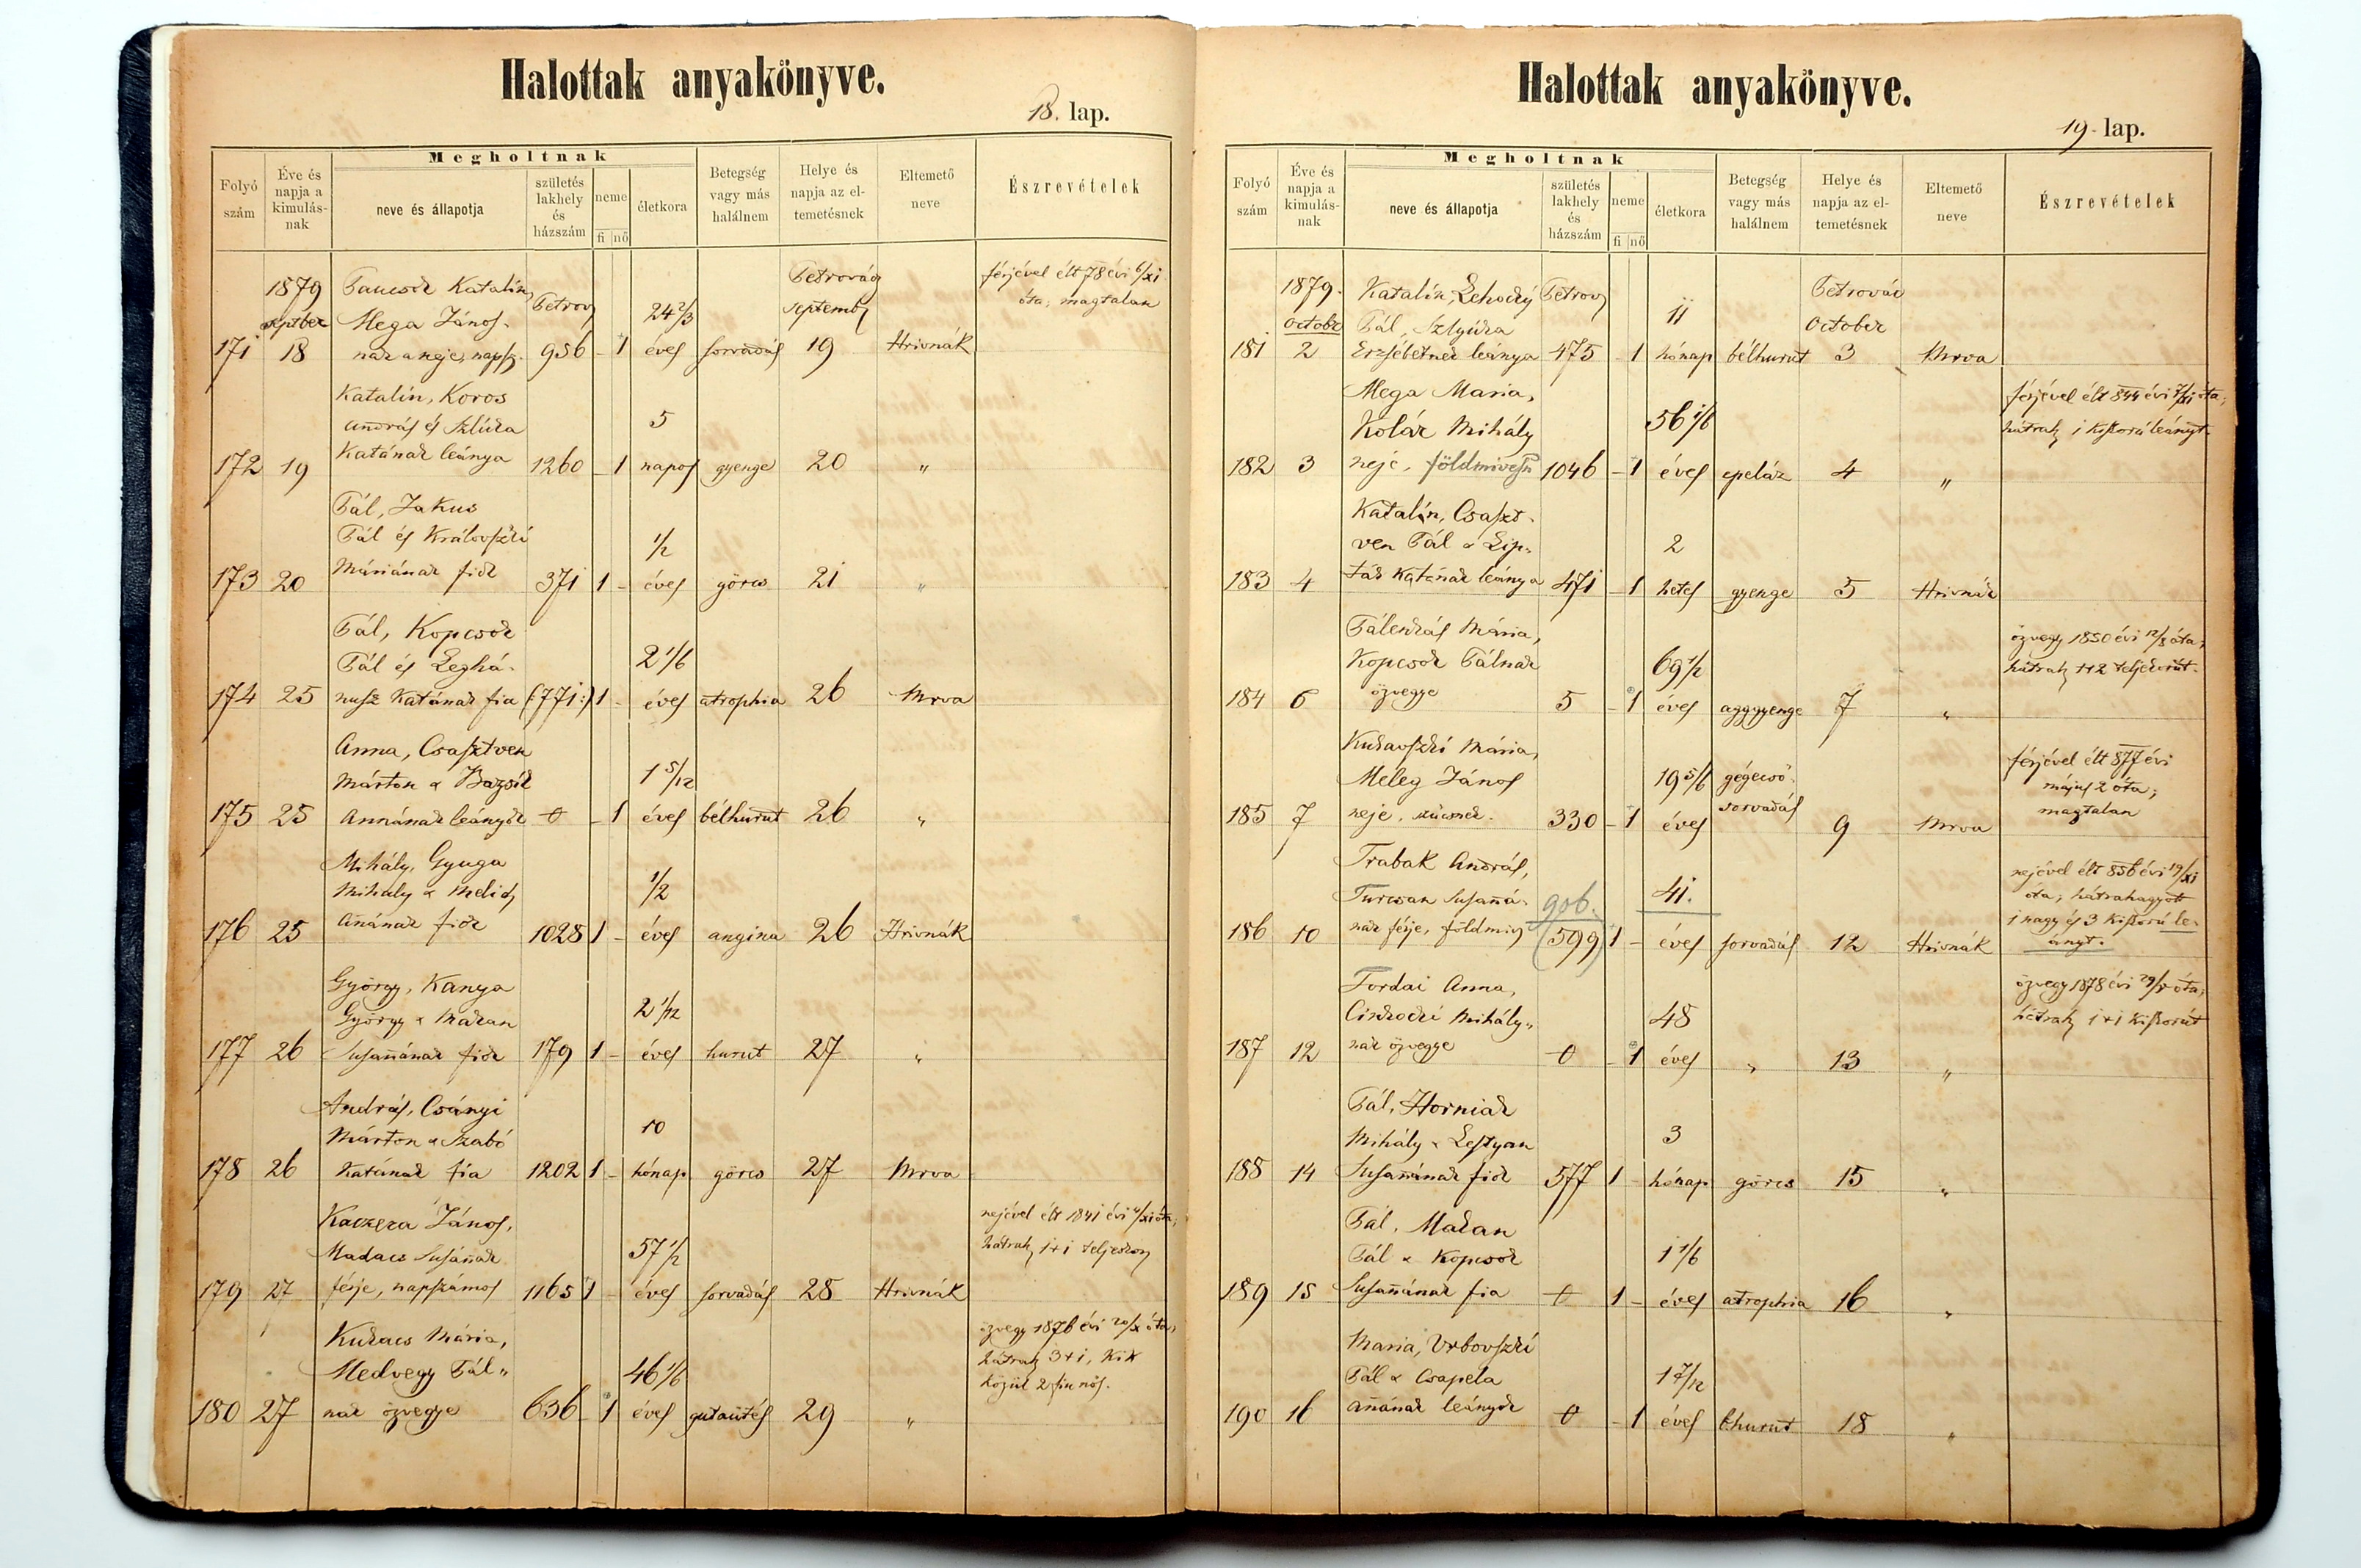 Halottak anyakönyve.
18. lap.
Folyó szám
Éve és napja a kimulás-nak
Megholtnak
neve és állapotja
születés lakhely és házszám
neme
fi nő
életkora
Betegség vagy más halálnem
Helye és napja az el-temetésnek
Eltemető neve
Észrevételek
1879 Katalin, Petrov Petrovác férjével élt 78 évi 6/xi
septber Mega János- 24 2/3 septemb óta; magtalan
171 18 nak a neje, napsz. 956 - 1 éves sorvadás 19 Hrivnák
Katalin, Koros
András és Szlúka 5
172 19 Katának leánya 1260 - 1 napos gyenge 20 "
Pál, Jakus
Pál és Královszki 1/2
173 20 Máriának fiok 371 1 - éves görcs 21 "
Pál, Kopcsok
Pál és Leghá- 2 1/6
174 25 nusz Katának fia (:771:) 1 - éves atrophia 26 Mrva
Anna, Csasztven
Márton & 1 5/12
175 25 Annának leányok 0 - 1 éves bélhurut 26 "
Mihály, Gyuga
Mihály & 1/2
176 25 Anának fiok 1028 1 - éves angina 26 Hrivnák
György, Kanya
György & Makan 2 1/12
177 26 Susanának fiok 179 1 - éves hurut 27 "
András, Csányi
Márton & Szabó 10
178 26 Katának fia 1202 1 - hónap görcs 27 Mrva
János, nejével élt 1841 évi óta;
Madacs Susának 57 1/2 hátrah 1+1
179 27 férje, napszámos 1165 1 - éves sorvadás 28 Hrivnák
Kukacs Mária, özvegy 1876 évi 20/x óta,
Medvegy Pál" 46 1/6 hátrah 3+1, kik
180 27 nak özvegye 636 - 1 éves gutaütés 29 " közül 2 fiu nős.
Halottak anyakönyve.
19. lap.
Folyó szám
Éve és napja a kimulás-nak
Megholtnak
neve és állapotja
születés lakhely és házszám
neme
fi nő
életkora
Betegség vagy más halálnem
Helye és napja az el-temetésnek
Eltemető neve
Észrevételek
1879. Katalin, Lehocký Petrov Petrovác
Octobr Pál, 11 October
181 2 Erzsébetnek leánya 475 - 1 hónap bélhurut 3 Mrva
Mega Maria, férjével élt 844 évi 7/xi óta;
Kolár Mihály 56 1/6 hátrah 1 kiskorú leányt.
182 3 neje, 1046 - 1 éves epeláz 4 "
Katalin, Csaszt-
ven Pál & Lip- 2
183 4 ták Katának leánya 471 - 1 hetes gyenge 5 Hrivnák
Pálenkás Mária, özvegy 1850 évi óta;
Kopcsok Pálnak 69 1/2 hátrah 1+2 teljeskorút.
184 6 özvegye 5 - 1 éves agggyenge 7 "
Mária, férjével élt 877 évi
Meleg János 19 5/6 gégecső- május 2 óta;
185 7 neje, szücsnek. 330 - 1 éves sorvadás 9 Mrva magtalan
Trabak András, nejével élt 856 évi 19/xi
Turcsan Susaná- 906. 41. óta; hátrahagyott
186 10 nak férje, földmiv (599) 1 - éves sorvadás 12 Hrivnák 1 nagy és 3 kiskorú le-
ányt.
Tordai Anna, özvegy 1878 évi óta;
Mihály" 48 hátrah 1+1 kiskorút
187 12 nak özvegye 0 - 1 éves " 13 "
Pál, Horniak
Mihály & Lestyan 3
188 14 Susanának fiok 577 1 - hónap görcs 15 "
Pál, Makan
Pál & Kopcsok 1 1/6
189 15 Susanának fia 0 1 - éves atrophia 16 "
Maria, Vrbovszki
Pál & Csapela 1 7/12
190 16 Anának leányok 0 - 1 éves bhurut 18 "